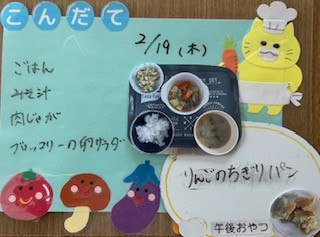 こんだて
2/19(木)
ごはん
みそ汁
肉じゃが
ブロッコリーの卵サラダ
りんごのちぎりパン
午後おやつ